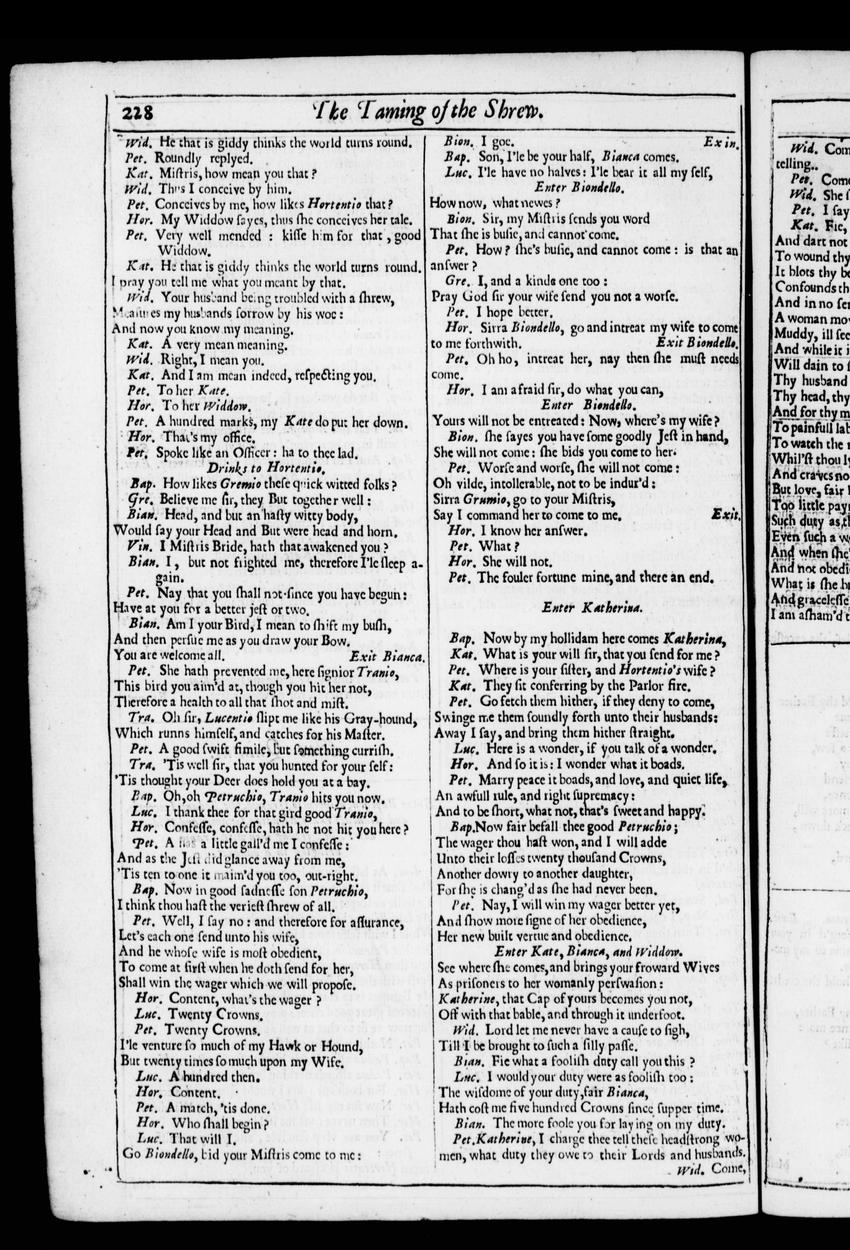 228 The Taming of the Shrew.
Wid. He that is giddy thinks the world turns round.
Pet. Roundly replyed.
Kat. Miſtris, how mean you that?
Wid. Thus I conceive by him.
Pet. Conceives by me, how likes Hortentio that?
Hor. My Widdow ſayes, thus ſhe conceives her tale.
Pet. Very well mended : kiſſe him for that, good
Widdow.
Kat. He that is giddy thinks the world turns round.
I pray you tell me what you meant by that.
Wid. Your husband being troubled with a ſhrew,
Meaſures my husbands ſorrow by his woe :
And now you know my meaning.
Kat. A very mean meaning.
Wid. Right, I mean you.
Kat. And I am mean indeed, reſpecting you.
Pet. To her Kate.
Hor. To her Widdow.
Pet. A hundred marks, my Kate do put her down.
Hor. That's my office.
Pet. Spoke like an Officer : ha to thee lad.
Drinks to Hortentio.
Bap. How likes Gremio theſe quick witted folks?
Gre. Believe me ſir, they But together well :
Bian. Head, and but an haſty witty body,
Would ſay your Head and But were head and horn.
Vin. I Miſtris Bride, hath that awakened you ?
Bian. I, but not frighted me, therefore I'le ſleep a-
gain.
Pet. Nay that you ſhall not ſince you have begun :
Have at you for a better jeſt or two.
Bian. Am I your Bird, I mean to ſhift my buſh,
And then perſue me as you draw your Bow.
You are welcome all. Exit Bianca.
Pet. She hath prevented me, here ſignior Tranio,
This bird you aim'd at, though you hit her not,
Therefore a health to all that ſhot and miſt.
Tra. Oh ſir, Lucentio ſlipt me like his Gray-hound,
Which runns himſelf, and catches for his Maſter.
Pet. A good ſwift ſimile, but ſomething curriſh.
Tra. 'Tis well ſir, that you hunted for your ſelf :
'Tis thought your Deer does hold you at a bay.
Bap. Oh, oh Petruchio, Tranio hits you now.
Luc. I thank thee for that gird good Tranio,
Hor. Confeſſe, confeſſe, hath he not hit you here?
Pet. A a little gall'd me I confeſſe :
And as the Jeſt did glance away from me,
'Tis ten to one it maim'd you too, out-right.
Bap. Now in good ſadneſſe ſon Petruchio,
I think thou haſt the verieſt ſhrew of all.
Pet. Well, I ſay no : and therefore for aſſurance,
Let's each one ſend unto his wife,
And he whoſe wife is moſt obedient,
To come at firſt when he doth ſend for her,
Shall win the wager which we will propoſe.
Hor. Content, what's the wager ?
Luc. Twenty Crowns.
Pet. Twenty Crowns.
I'le venture ſo much of my Hawk or Hound,
But twenty times ſo much upon my Wife.
Luc. A hundred then.
Hor. Content.
Pet. A match, 'tis done.
Hor. Who ſhall begin?
Luc. That will I.
Go Biondello, bid your Miſtris come to me :
Bion. I goe. Exin.
Bap. Son, I'le be your half, Bianca comes.
Luc. I'le have no halves : I'le bear it all my ſelf,
Enter Biondello.
How now, what newes ?
Bion. Sir, my Miſtris ſends you word
That ſhe is buſie, and cannot come.
Pet. How? ſhe's buſie, and cannot come : is that an
anſwer ?
Gre. I, and a kinde one too :
Pray God ſir your wife ſend you not a worſe.
Pet. I hope better.
Hor. Sirra Biondello, go and intreat my wife to come
to me forthwith. Exit Biondello.
Pet. Oh ho, intreat her, nay then ſhe muſt needs
come.
Hor. I am afraid ſir, do what you can,
Enter Biondello.
Yours will not be entreated : Now, where's my wife?
Bion. ſhe ſayes you have ſome goodly Jeſt in hand,
She will not come : ſhe bids you come to her.
Pet. Worſe and worſe, ſhe will not come :
Oh vilde, intollerable, not to be indur'd :
Sirra Grumio, go to your Miſtris,
Say I command her to come to me. Exit.
Hor. I know her anſwer.
Pet. What ?
Hor. She will not.
Pet. The fouler fortune mine, and there an end.
Enter Katherina.
Bap. Now by my hollidam here comes Katherina,
Kat. What is your will ſir, that you ſend for me?
Pet. Where is your ſiſter, and Hortentio's wife ?
Kat. They ſit conferring by the Parlor fire.
Pet. Go fetch them hither, if they deny to come,
Swinge me them ſoundly forth unto their husbands :
Away I ſay, and bring them hither ſtraight.
Luc. Here is a wonder, if you talk of a wonder.
Hor. And ſo it is : I wonder what it boads.
Pet. Marry peace it boads, and love, and quiet life,
An awfull rule, and right ſupremacy :
And to be ſhort, what not, that's ſweet and happy.
Bap. Now fair befall thee good Petruchio ;
The wager thou haſt won, and I will adde
Unto their loſſes twenty thouſand Crowns,
Another dowry to another daughter,
For ſhe is chang'd as ſhe had never been.
Pet. Nay, I will win my wager better yet,
And ſhow more ſigne of her obedience,
Her new built vertue and obedience.
Enter Kate, Bianca, and Widdow.
See where ſhe comes, and brings your froward Wives
As priſoners to her womanly perſwaſion :
Katherine, that Cap of yours becomes you not,
Off with that bable, and through it underfoot.
Wid. Lord let me never have a cauſe to ſigh,
Till I be brought to ſuch a ſilly paſſe.
Bian. Fie what a fooliſh duty call you this ?
Luc. I would your duty were as fooliſh too :
The wiſdome of your duty, fair Bianca,
Hath coſt me five hundred Crowns ſince ſupper time.
Bian. The more foole you for laying on my duty.
Pet. Katherine, I charge thee tell theſe headſtrong wo-
men, what duty they owe to their Lords and husbands.
Wid. Come,
Wid. Com
telling.
Pet. Come
Wid. She ſ
Pet. I ſay
Kat. Fie,
And dart not
To wound thy
It blots thy be
Confounds th
And in no ſen
A woman mov
Muddy, ill ſee
And while it i
Will dain to ſ
Thy husband
Thy head, thy
And for thy m
To painfull lab
To watch the n
Whil'ſt thou ly
And craves no
But love, fair l
Too little paym
Such duty as th
Even ſuch a wo
And when ſhe'
And not obedi
What is ſhe bu
And graceleſſe
I am aſham'd t